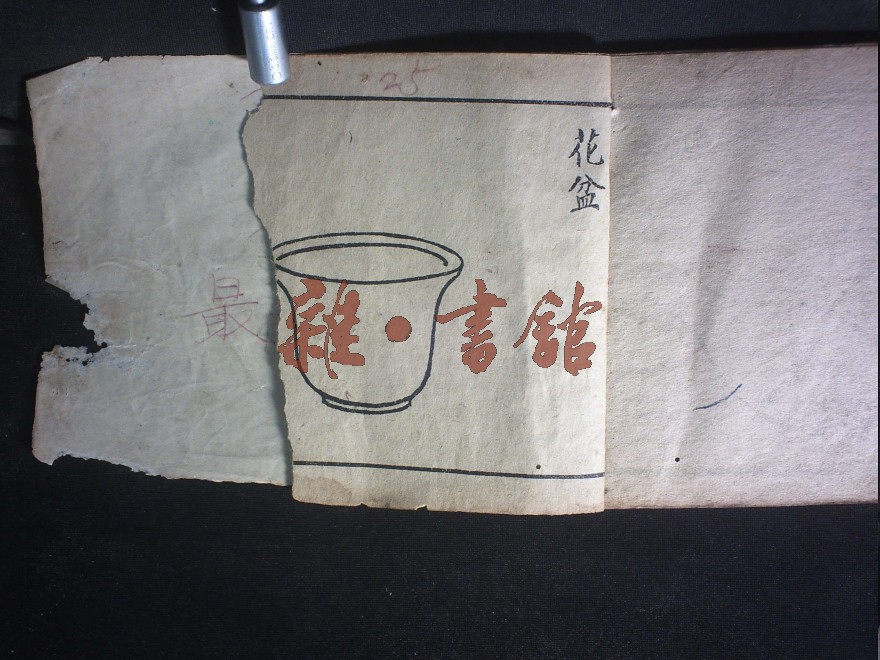 25
花盆
最
雜·書館